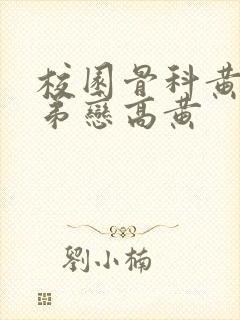 校園骨科黃
弟戀高黃
劉小楠